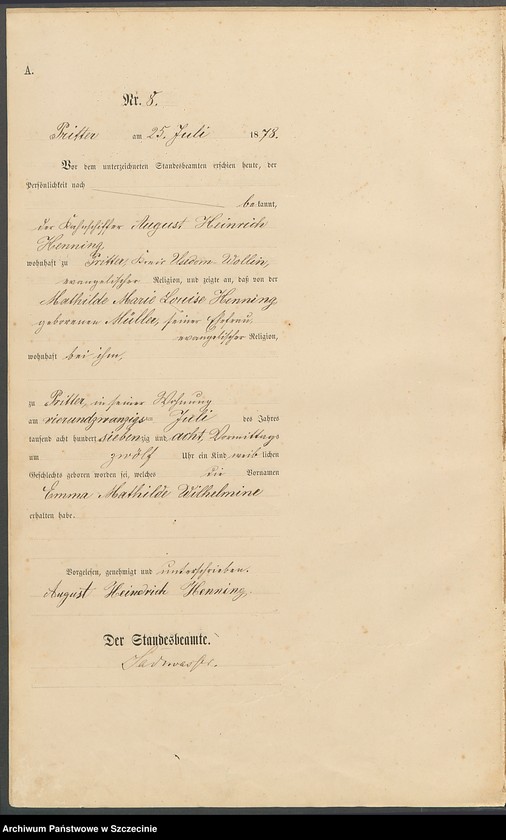 A.
Nr. 8.
Pritter am 25. Juli 1878.
Vor dem unterzeichneten Standesbeamten erschien heute, der
Persönlichkeit nach
be kannt,
der Kahnschiffer August Heinrich
Henning,
wohnhaft zu Pritter, Kreis Usedom-Wollin,
evangelischer Religion, und zeigte an, daß von der
Mathilde Marie Louise Henning
geborenen Müller, seiner Ehefrau,
evangelischer Religion,
wohnhaft bei ihm,
zu Pritter, in seiner Wohnung
am vierundzwanzigsten Juli des Jahres
tausend acht hundert siebenzig und acht, Vormittags
um zwölf Uhr ein Kind weib lichen
Geschlechts geboren worden sei, welches die Vornamen
Emma Mathilde Wilhelmine
erhalten habe.
Vorgelesen, genehmigt und unterschrieben.
August Heindrich Henning.
Der Standesbeamte.
Archiwum Państwowe w Szczecinie